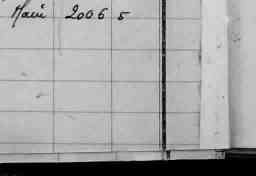 Mari 2006 5